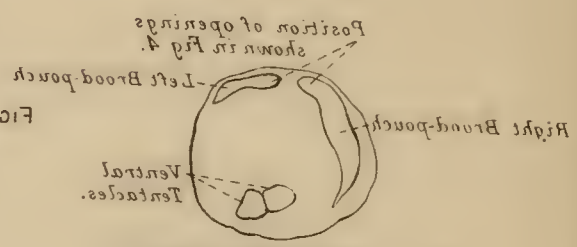 Position of openings
shown in Fig 4.
Left Brood-pouch
Right Brood-pouch
FIG
Ventral
Tentacles.